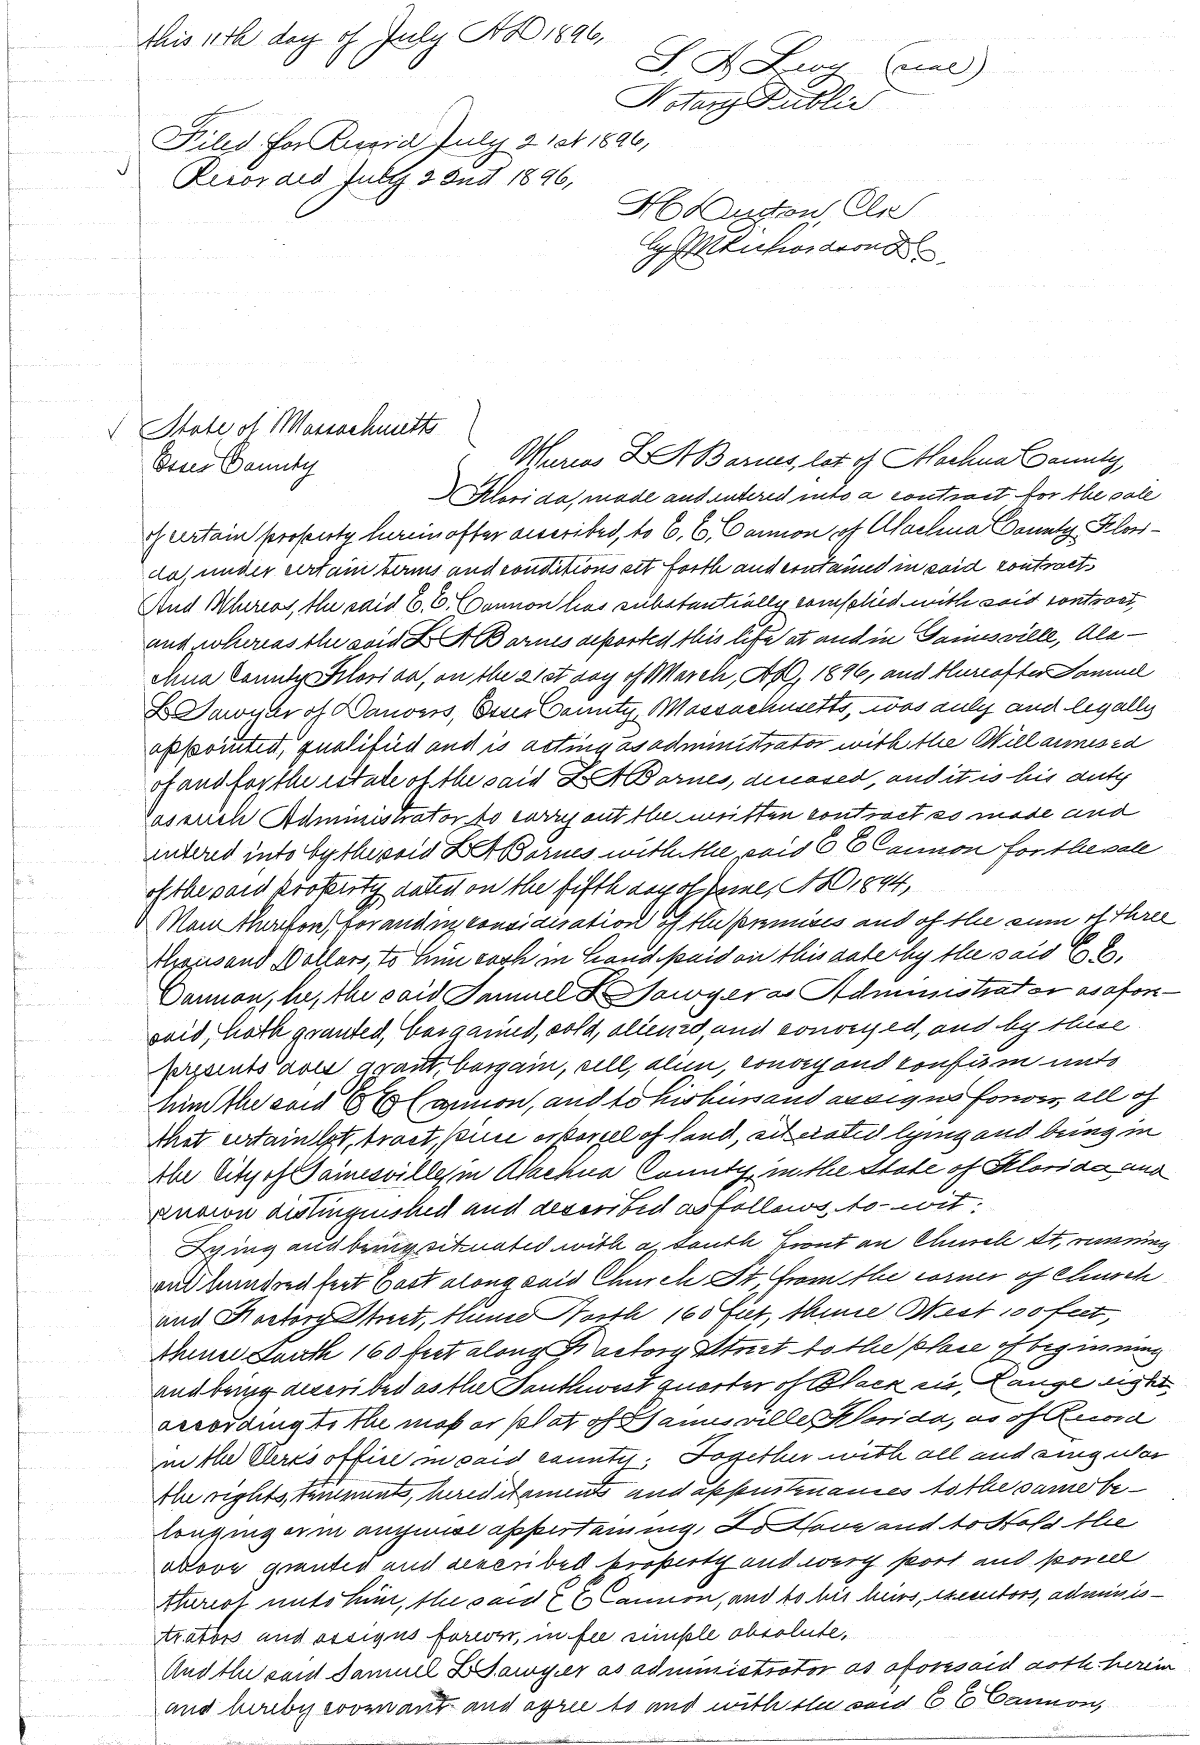 this 11th day of July AD 1896,
S. A. Levy (seal)
Notary Public
Filed for Record July 21st 1896,
Recorded July 22nd 1896,
Clk
by J M Richardson D C
State of Massachusetts
Essex County
Whereas L A Barnes, lat of Alachua County,
Florida, made and entered into a contract for the sale
of certain property hereinafter described, to E. E. Cannon of Alachua County, Flori-
da, under certain terms and conditions set forth and contained in said contract.
And Whereas, the said E. E. Cannon has substantially complied with said contract,
and whereas the said L A Barnes departed this life at and in Gainesville, Ala-
chua County Florida, on the 21st day of March, AD, 1896, and thereafter Samuel
L Sawyer of Danvers, Essex County, Massachusetts, was duly and legally
appointed, qualified and is acting as administrator with the Will annexed
of and for the estate of the said L A Barnes, deceased, and it is his duty
as such Administrator to carry out the written contract so made and
entered into by the said L A Barnes with the said E E Cannon for the sale
of the said property dated on the fifth day of June, AD 1894,
Now therefore, for and in consideration of the premises and of the sum of three
thousand Dollars, to him cash in hand paid on this date by the said E. E.
Cannon, he, the said Samuel L Sawyer as Administrator as afore-
said, hath granted, bargained, sold, aliened, and conveyed, and by these
presents does grant, bargain, sell, alien, convey and confirm unto
him the said E E Cannon, and to his heirs and assigns forever, all of
that certain lot, tract, piece or parcel of land, situated lying and being in
the City of Gainesville, in Alachua County, in the State of Florida, and
known distinguished and described as follows, to-wit:
Lying and being situated with a South front on Church St, running
one hundred feet East along said Church St, from the corner of Church
and Factory Street, thence North 160 feet, thence West 100 feet,
thence South 160 feet along Factory Street to the place of beginning
and being described as the Southwest quarter of Block six, Range eight,
according to the map or plat of Gainesville, Florida, as of Record
in the Clerk's office in said county; Together with all and singular
the rights, tenements, hereditaments and appurtenances to the same be-
longing or in anywise appertaining, To Have and to Hold the
above granted and described property and every part and parcel
thereof unto him, the said E E Cannon, and to his heirs, executors, adminis-
trators and assigns forever, in fee simple absolute.
And the said Samuel L Sawyer as administrator as aforesaid doth herein
and hereby covenant and agree to and with the said E E Cannon,